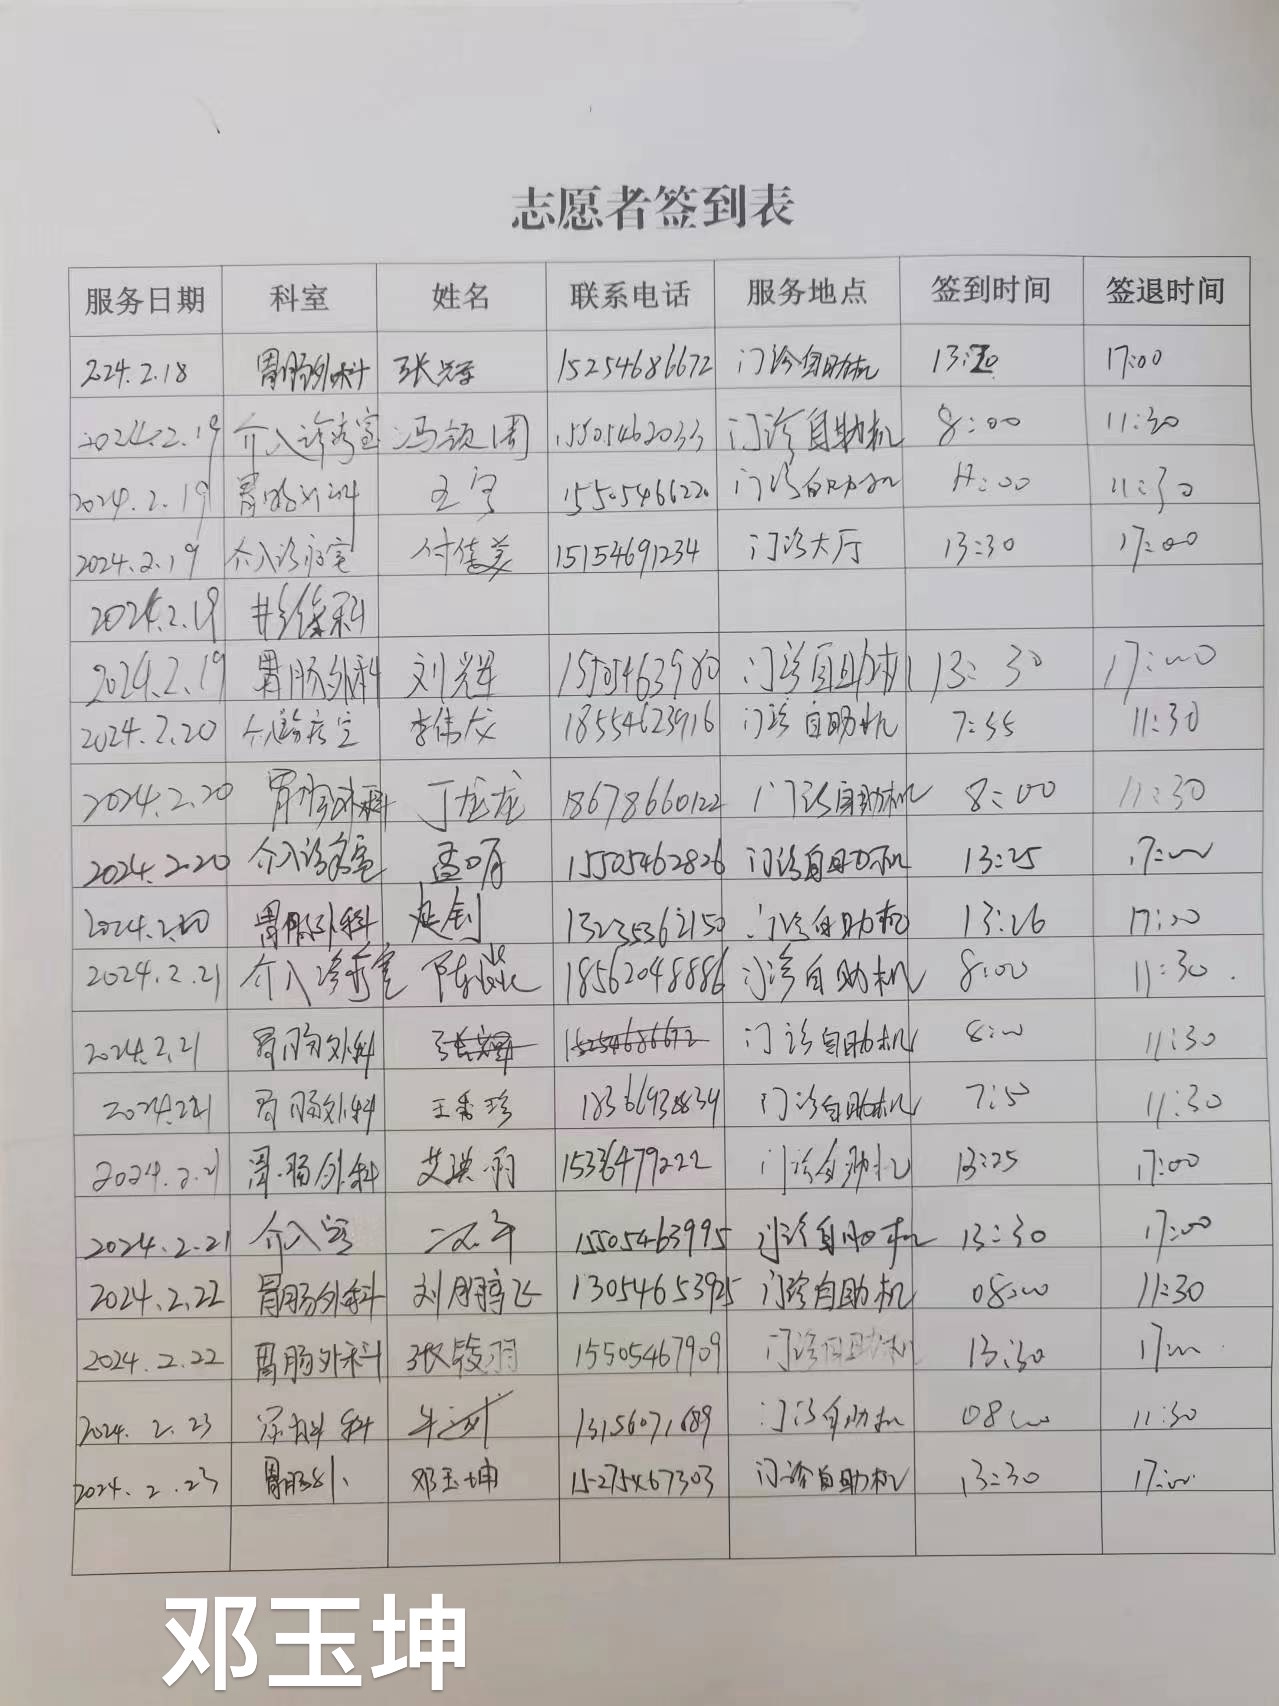 志愿者签到表
服务日期 科室 姓名 联系电话 服务地点 签到时间 签退时间
2024.2.18 胃肠外科 张辉 15254686672 门诊自助机 17:00
2024.2.19 介入诊疗室 冯领周 15505462033 门诊自助机 8:00 11:30
2024.2.19 胃肠外科 王宁 15505466220 门诊自助机 11:30
2024.2.19 介入诊疗室 付佳美 15154691234 门诊大厅 13:30 17:00
2024.2.19
2024.2.19 胃肠外科 刘辉 15505463980 门诊自助机 13:30 17:00
2024.2.20 介入诊疗室 李伟 18554623916 门诊自助机 7:55 11:30
2024.2.20 胃肠外科 丁龙龙 18678660122 门诊自助机 8:00 11:30
2024.2.20 介入诊疗室 孟 15505462826 门诊自助机 13:25 17:00
2024.2.20 胃肠外科 13235362150 门诊自助机 13:26 17:00
2024.2.21 介入诊疗室 陈 18562048886 门诊自助机 8:00 11:30
2024.2.21 胃肠外科 张辉 15254686672 门诊自助机 8:00 11:30
2024.2.21 胃肠外科 王秀珍 18366938834 门诊自助机 7:50 11:30
2024.2.21 胃肠外科 艾琪雨 15336479222 门诊自助机 13:25 17:00
2024.2.21 介入室 15505463995 门诊自助机 13:30 17:00
2024.2.22 胃肠外科 刘鹏飞 13054653925 门诊自助机 08:00 11:30
2024.2.22 胃肠外科 张 15505467909 门诊自助机 13:30 17:00
2024.2.23 牛 13156071689 门诊自助机 08:00 11:30
2024.2.23 胃肠外 邓玉坤 15275467303 门诊自助机 13:30 17:00
邓玉坤